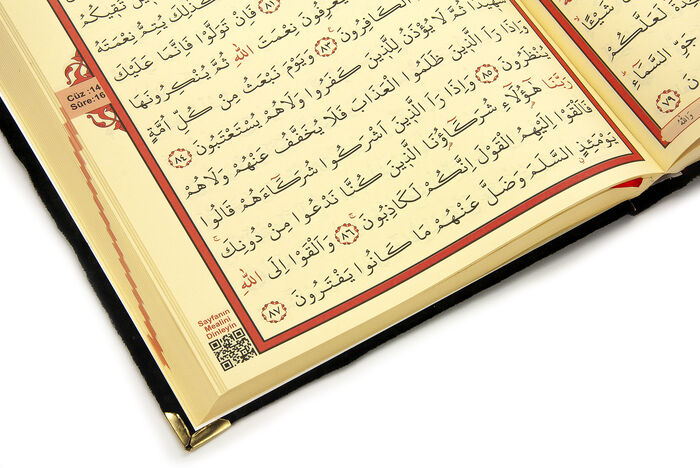 شَيْـًٔا
لَعَلَّكُمْ
جَوِّ السَّمَاءِ
﴿٧٩﴾
وَاللّٰهُ
تَقِيكُمْ
كَذٰلِكَ يُتِمُّ نِعْمَتَهُ
﴿٨١﴾ فَاِنْ تَوَلَّوْا فَاِنَّمَا عَلَيْكَ
يَعْرِفُونَ نِعْمَتَ اللّٰهِ ثُمَّ يُنْكِرُونَهَا
الْكَافِرُونَ ﴿٨٣﴾ وَيَوْمَ نَبْعَثُ مِنْ كُلِّ اُمَّةٍ
شَهِيدًا ثُمَّ لَا يُؤْذَنُ لِلَّذِينَ كَفَرُوا وَلَا هُمْ يُسْتَعْتَبُونَ ﴿٨٤﴾
وَاِذَا رَاَ الَّذِينَ ظَلَمُوا الْعَذَابَ فَلَا يُخَفَّفُ عَنْهُمْ وَلَا هُمْ
يُنْظَرُونَ ﴿٨٥﴾ وَاِذَا رَاَ الَّذِينَ اَشْرَكُوا شُرَكَٓاءَهُمْ قَالُوا
رَبَّنَا هٰٓؤُ۬لَٓاءِ شُرَكَٓاؤُ۬نَا الَّذِينَ كُنَّا نَدْعُوا مِنْ دُونِكَۚ
فَاَلْقَوْا اِلَيْهِمُ الْقَوْلَ اِنَّكُمْ لَكَاذِبُونَۚ ﴿٨٦﴾ وَاَلْقَوْا اِلَى اللّٰهِ
يَوْمَئِذٍ السَّلَمَ وَضَلَّ عَنْهُمْ مَا كَانُوا يَفْتَرُونَ ﴿٨٧﴾
Cüz :14
Sûre:16
Sayfanın
Mealini
Dinleyin